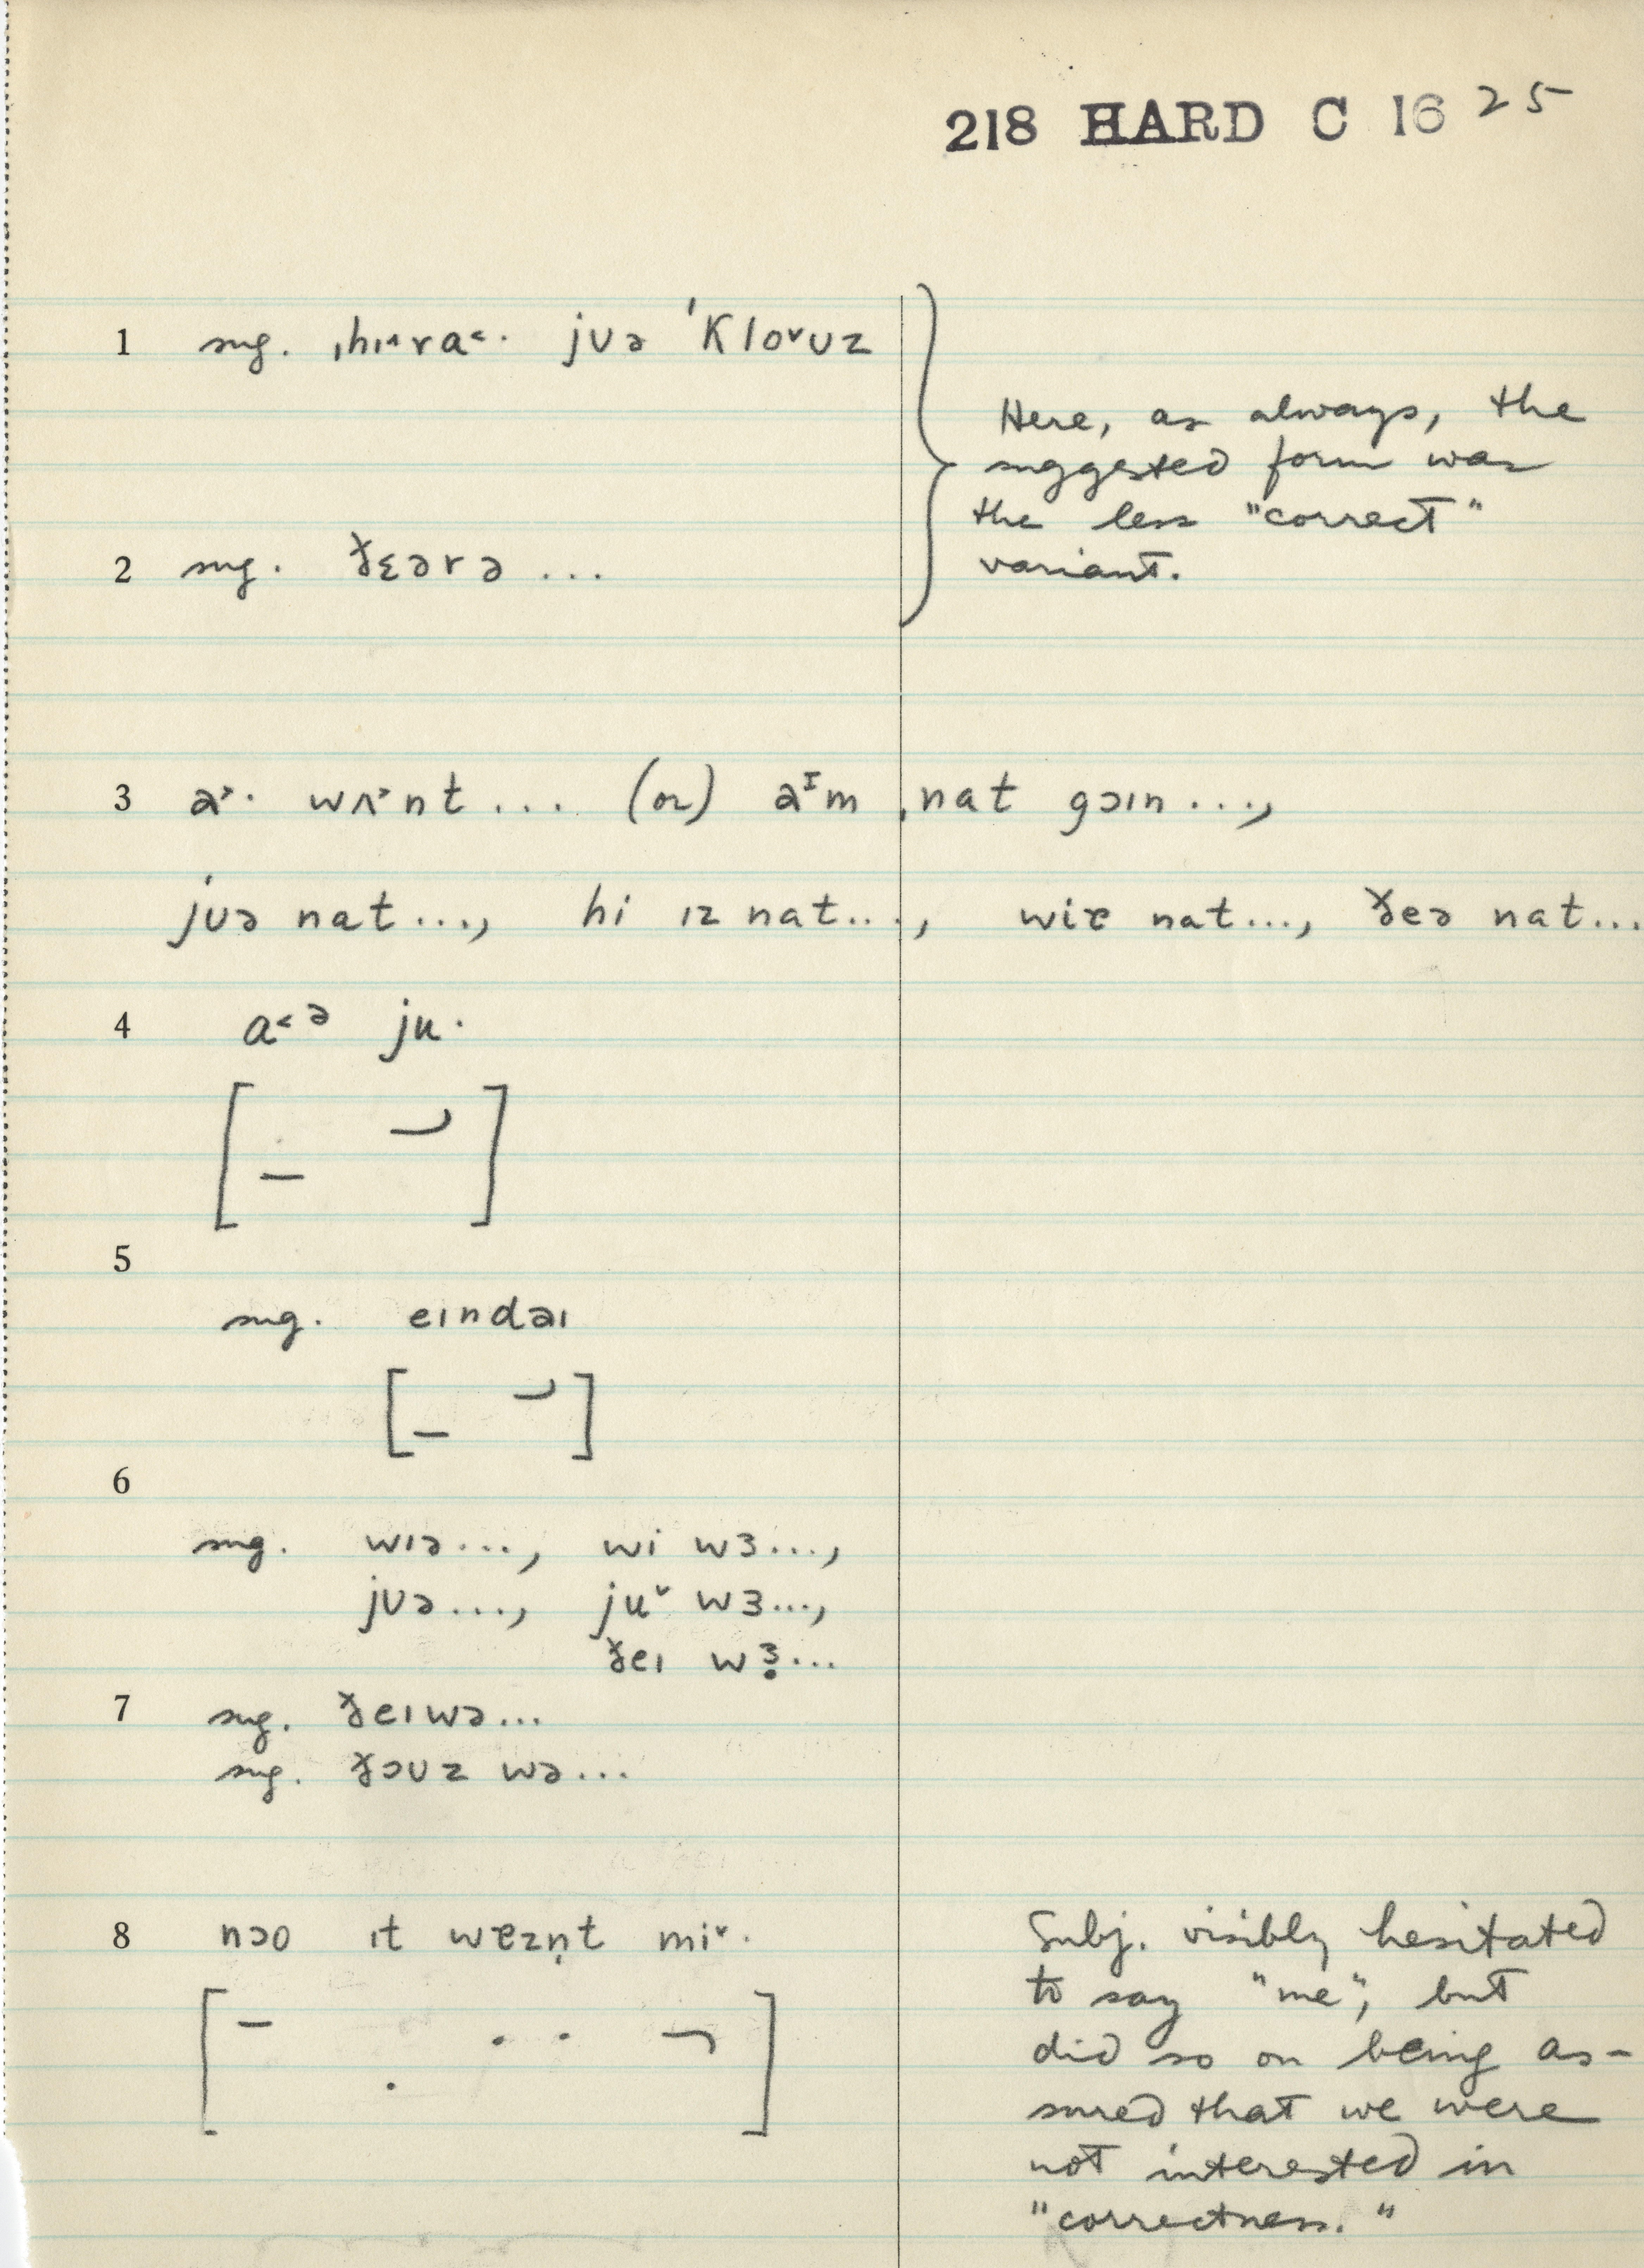 218 HARD C 16 25
1 sug. ˌhɪ˄ra˂· jʊə ˈKlo˅ʊz
Here, as always, the
suggested form was
the less "correct"
variant.
2 sug. ɣ̌ɛərə ...
3 a˃· wʌ˃nt ... (or) aᶦm ˌnat gɔɪn ...,
jʊə nat ..., hi ɪz nat ..., wiɐ nat ..., ðeə nat ...
4 a˂ᵊ ju·
[ – ⏌ ]
5
sug. eɪndəɪ
6
sug. wɪə ..., wi wɜ ...,
jʊə ..., ju˅ wɜ ...,
ðeɪ wɜ̣ ...
7 sug. ðeɪwə ...
sug. ðɔʊz wə ...
8 nɔo ɪt wɐzn̩t mi˅·
Subj. visibly hesitated
to say "me", but
did so on being as-
sured that we were
not interested in
"correctness."